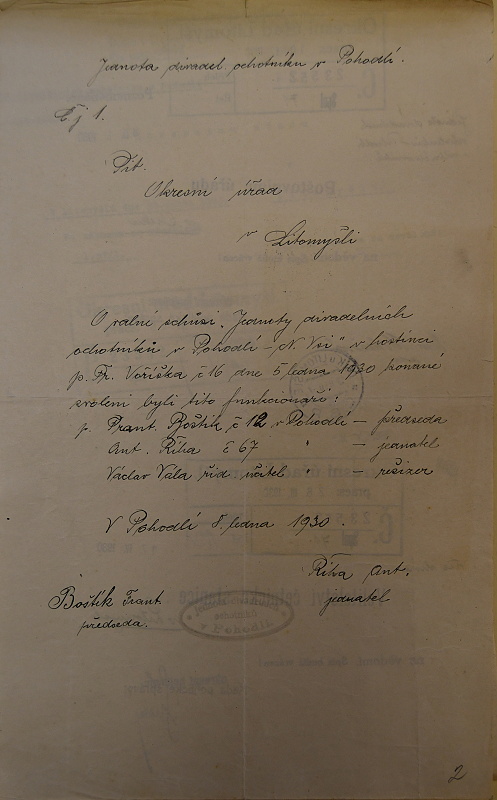 Jednota divadel. ochotníků v Pohodlí.
Čj 1.
Tit.
Okresní úřad
v Litomyšli
O valné schůzi „Jednoty divadelních
ochotníků v Pohodlí – N. Vsi" v hostinci
p. Fr. Voříška č 16 dne 5 ledna 1930 konané
zvoleni byli tito funkcionáři:
p. Frant. Boštík č 12 v Pohodlí – předseda
Ant. Říha č 67 " – jednatel
Václav Vála říd. učitel – režizer
V Pohodlí 8. ledna 1930.
Říha Ant.
jednatel
Boštík Frant
předseda.
v Pohodlí
2